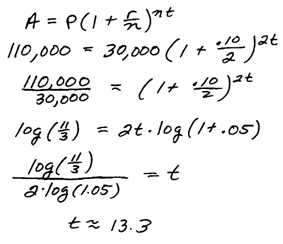 A = P(1 + r/n)^nt
110,000 = 30,000(1 + .10/2)^2t
110,000/30,000 = (1 + .10/2)^2t
log(11/3) = 2t · log(1+.05)
log(11/3)/2·log(1.05) = t
t ≈ 13.3